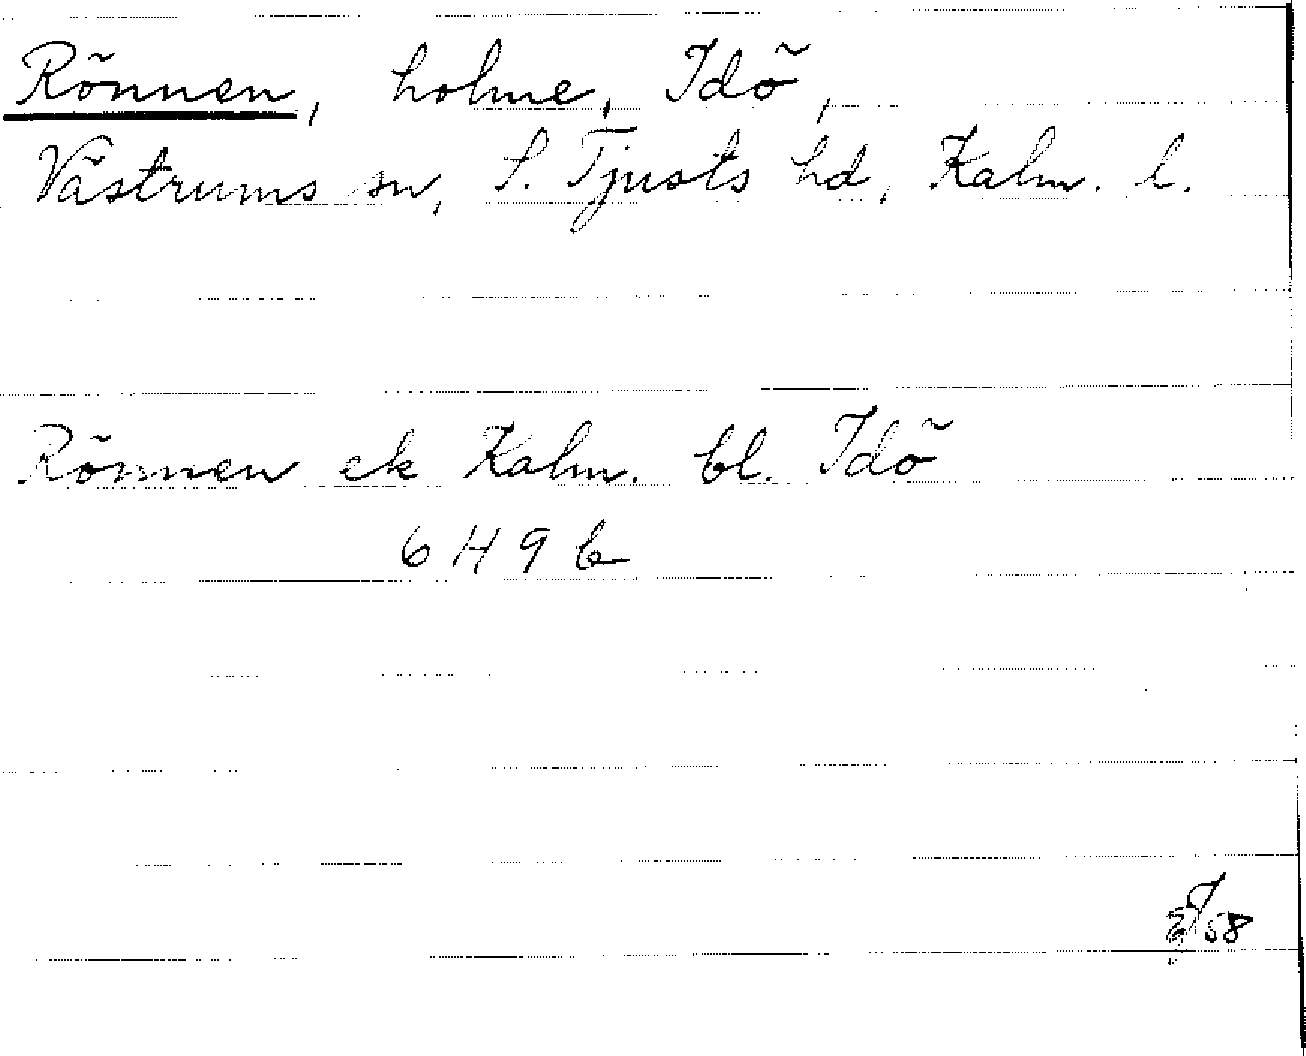 Rönnen, holme, Idö,
Västrums sn, S. Tjusts hd, Kalm. l.
Rönnen ek Kalm. bl. Idö
6 H 9 b
58